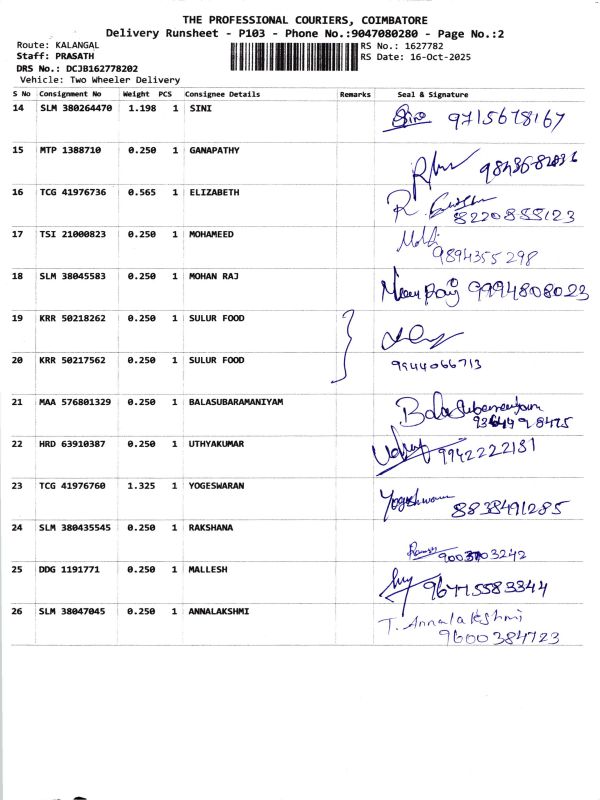 THE PROFESSIONAL COURIERS, COIMBATORE
Delivery Runsheet - P103 - Phone No.:9047080280 - Page No.:2
Route: KALANGAL RS No.: 1627782
Staff: PRASATH RS Date: 16-Oct-2025
DRS No.: DCJB162778202
Vehicle: Two Wheeler Delivery
S No Consignment No Weight PCS Consignee Details Remarks Seal & Signature
14 SLM 380264470 1.198 1 SINI
9715678167
15 MTP 1388710 0.250 1 GANAPATHY
16 TCG 41976736 0.565 1 ELIZABETH R.
8220855123
17 TSI 21000823 0.250 1 MOHAMEED
9894355298
18 SLM 38045583 0.250 1 MOHAN RAJ
9994808023
19 KRR 50218262 0.250 1 SULUR FOOD
20 KRR 50217562 0.250 1 SULUR FOOD
9944066713
21 MAA 576801329 0.250 1 BALASUBARAMANIYAM
22 HRD 63910387 0.250 1 UTHYAKUMAR
9942222131
23 TCG 41976760 1.325 1 YOGESWARAN
8838491285
24 SLM 380435545 0.250 1 RAKSHANA
25 DDG 1191771 0.250 1 MALLESH
26 SLM 38047045 0.250 1 ANNALAKSHMI T. Annalakshmi
9600384723